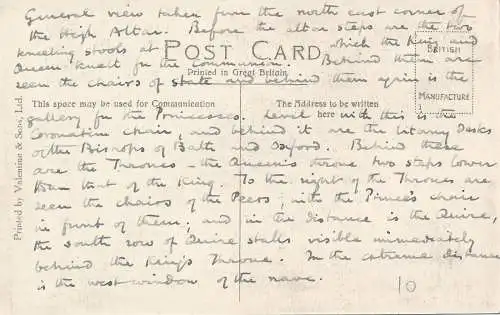 General view taken from the north east corner of
the High Altar. Before the altar steps are the two
kneeling stools at which the King and
POST CARD
BRITISH
MANUFACTURE
Queen knelt for the Communion. Behind them are
Printed in Great Britain.
seen the chairs of state and behind them again is the
This space may be used for Communication
The Address to be written
here
gallery for the Princesses. Level with this is the
Coronation chair, and behind it are the Litany Desks
of the Bishops of Bath and Oxford. Behind these
are the Thrones - the Queen's throne two steps lower
than that of the King. To the right of the Thrones are
seen the chairs of the Peers; with the Prince's chair
in front of them; and in the distance is the Quire,
the south row of Quire stalls visible immediately
behind the King's Throne. In the extreme distance
is the west window of the nave.
10
Printed by Valentine & Sons, Ltd.